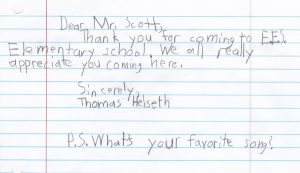 Dear Mr. Scotts,
Thank you for coming to E.E.S.
Elementary school. We all really
appreciate you coming here.
Sincerely,
Thomas Helseth
P.S. What's your favorite song?